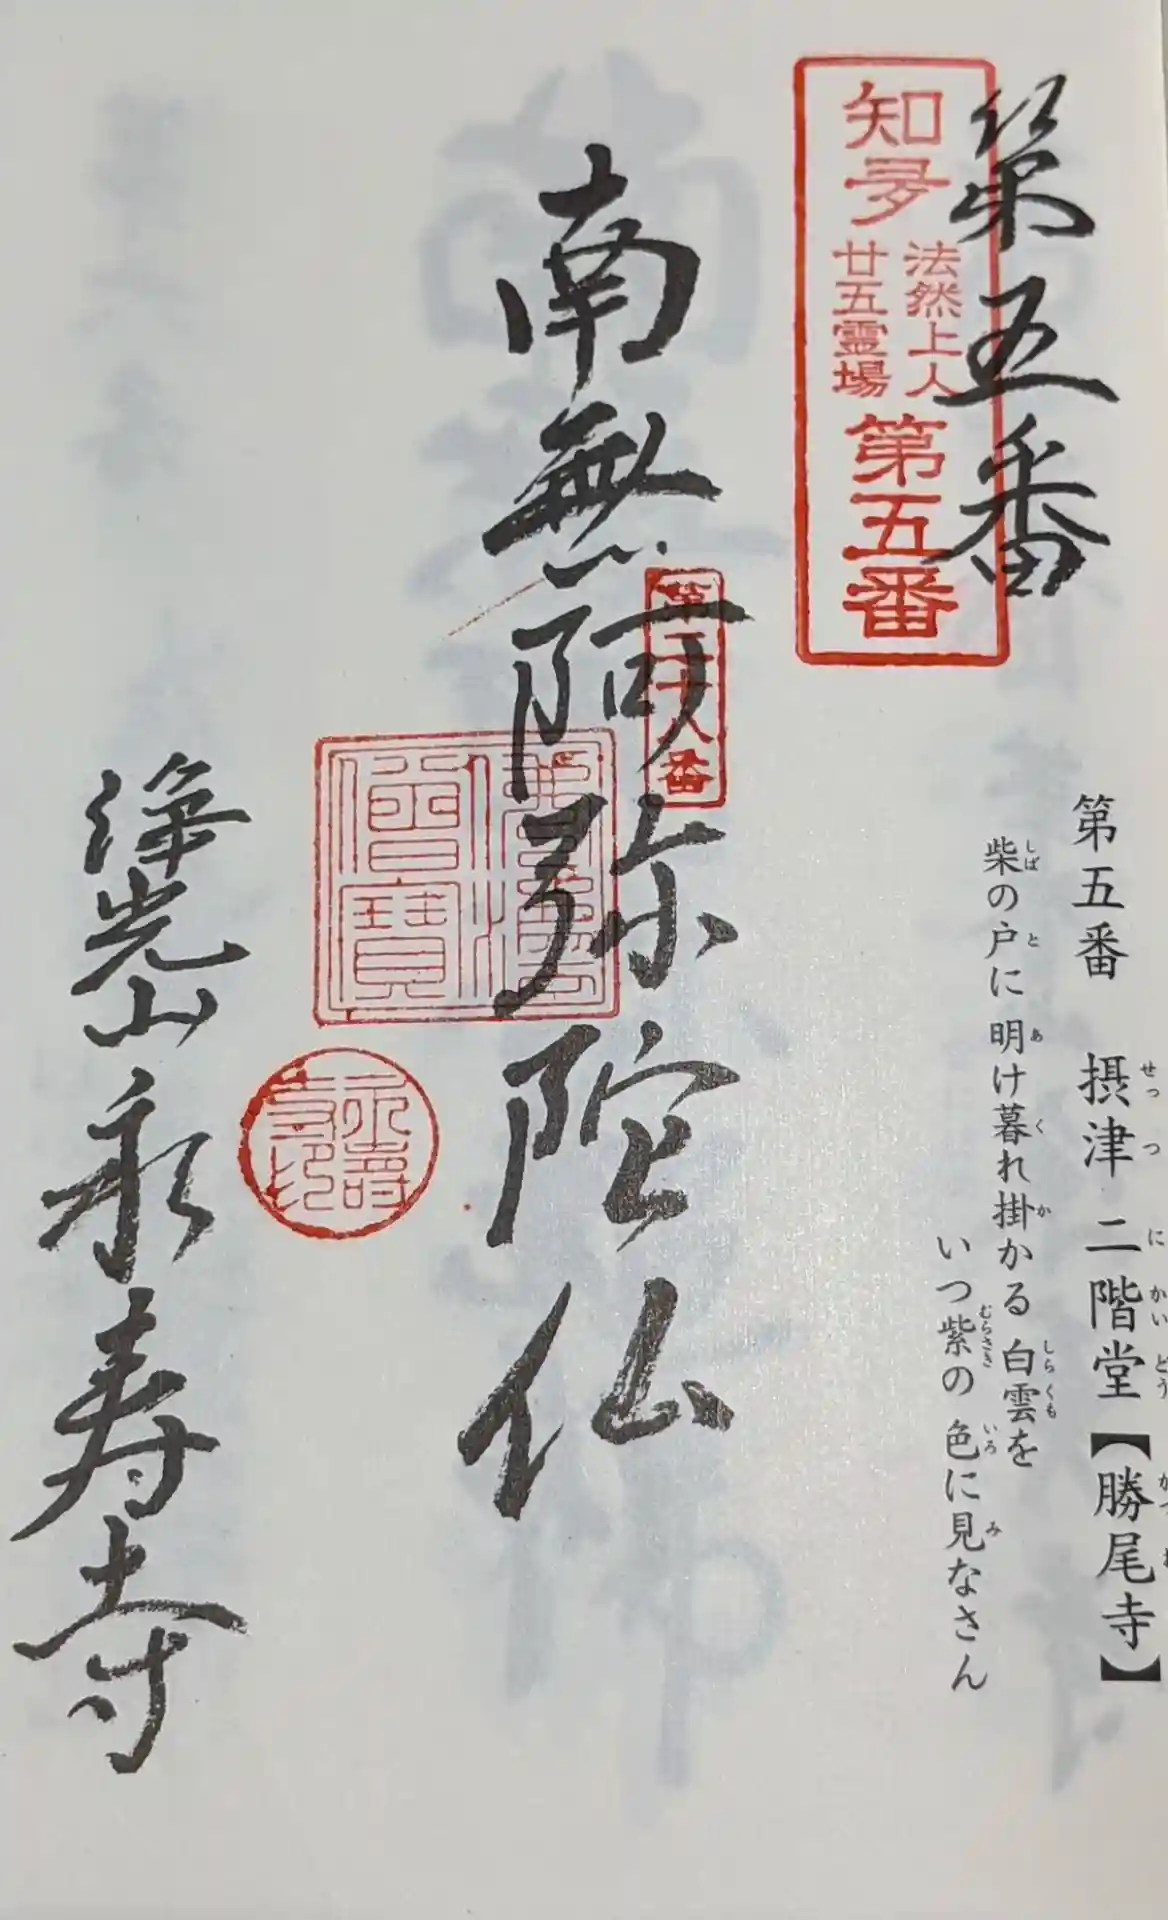 第五番
知多
法然上人
廿五霊場
第五番
第五番　摂津　二階堂【勝尾寺】
柴の戸に　明け暮れ掛かる　白雲を
いつ紫の　色に見なさん
南無阿弥陀仏
佛法僧寳
浄光山　永寿寺